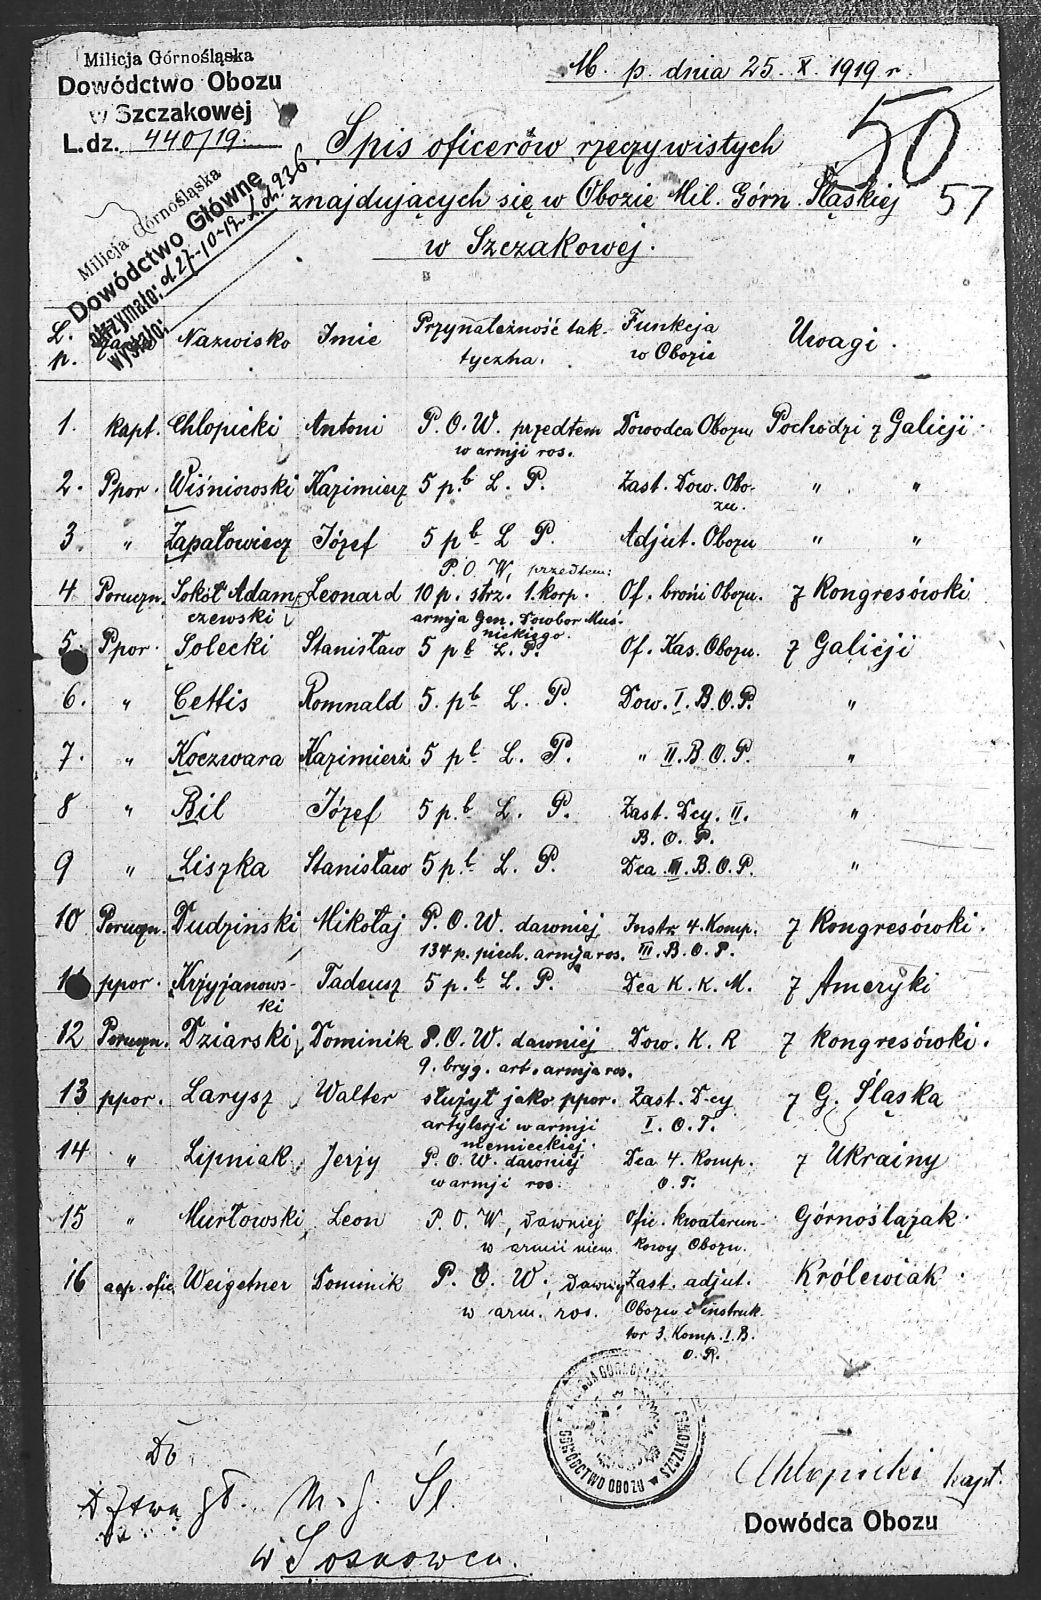 Milicja Górnośląska
Dowództwo Obozu
w Szczakowej
L.dz. 440/19.
M. p. dnia 25. X. 1919 r.
50
57
Milicja Górnośląska
Dowództwo Główne
otrzymało: d. 27-10-19 L.d. 236.
wysłało:
Spis oficerów rzeczywistych
znajdujących się w Obozie Mil. Górn. Śląskiej
w Szczakowej.
L. p. Nazwisko Imie Przynależność tak- Funkcja Uwagi.
tyczna. w Obozie
1. kapt. Chłopicki Antoni P. O. W. przedtem Dowodca Obozu Pochodzi z Galicji.
w armji ros.
2. Ppor. Wiśniowski Kazimierz 5 p.b L. P. Zast. Dow. Obo- " "
zu.
3. " Zapałowicz Józef 5 p.b L. P. Adjut. Obozu " "
P. O. W, przedtem:
4 Poruczn. Sokół Adam Leonard 10 p. strz. 1. korp. Of. broni Obozu. z Kongresówki
czewski armja Gen. Dowbor Muś-
nickiego.
5. Ppor. Solecki Stanisław 5 pb L. P. Of. Kas. Obozu. z Galicji
6. " Cettis Romuald 5. pb L. P. Dow. I. B. O. P. "
7. " Koczwara Kazimierz 5 pb L. P. " II. B. O. P. "
8 " Bil Józef 5 p.b L. P. Zast. Dcy. II. "
B. O. P.
9 " Liszka Stanisław 5 p.b L. P. Dca III. B. O. P. "
10 Poruczn. Dudziński Mikołaj P. O. W. dawniej Instr. 4. Komp. z Kongresówki.
134 p. piech. armja ros. III. B. O. P.
11 ppor. Krzyżanows- Tadeusz 5 p.b L. P. Dca K. K. M. z Ameryki
ki
12 Poruczn. Dziarski Dominik P. O. W. dawniej Dow. K. R z Kongresówki.
9. bryg. art. armja ros.
13 ppor. Larysz Walter służył jako ppor. Zast. D-cy z G. Śląska
artylerji w armji I. O. T.
niemieckiej.
14 " Lipniak Jerzy P. O. W. dawniej Dca 4. Komp. z Ukrainy
w armji ros. O. T.
15 " Murłowski Leon P. O. W, dawniej Ofic. kwaterun- Górnoślązak.
w armii niem. kowy Obozu.
16 asp. ofic. Weigetner Dominik P. O. W, Zast. adjut. Królewiak.
w arm. ros. Obozu i instruk
tor 3. Komp. I. B.
O. P.
DOWÓDZTWO OBOZU w SZCZAKOWEJ
Do
D-ztwa gł. M. G. Śl.
w Sosnowcu.
Chłopicki kapt.
Dowódca Obozu